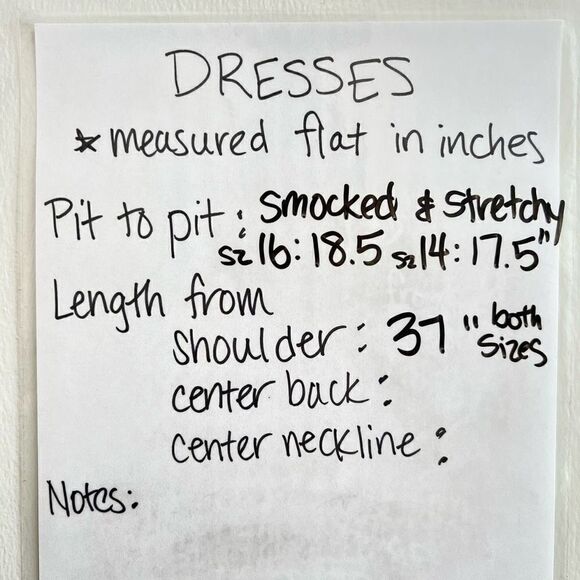 DRESSES
* measured flat in inches
Pit to pit: smocked & stretchy
sz 16: 18.5 sz 14: 17.5"
Length from
shoulder: 37" both sizes
center back:
center neckline:
Notes: